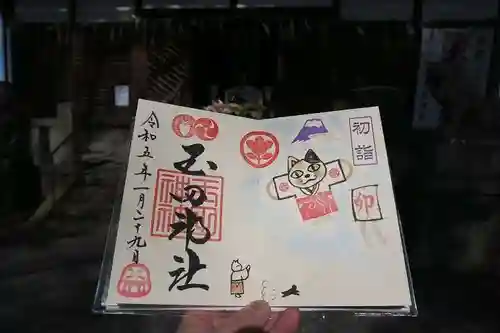 初詣
卯
玉田神社
令和五年一月二十九日